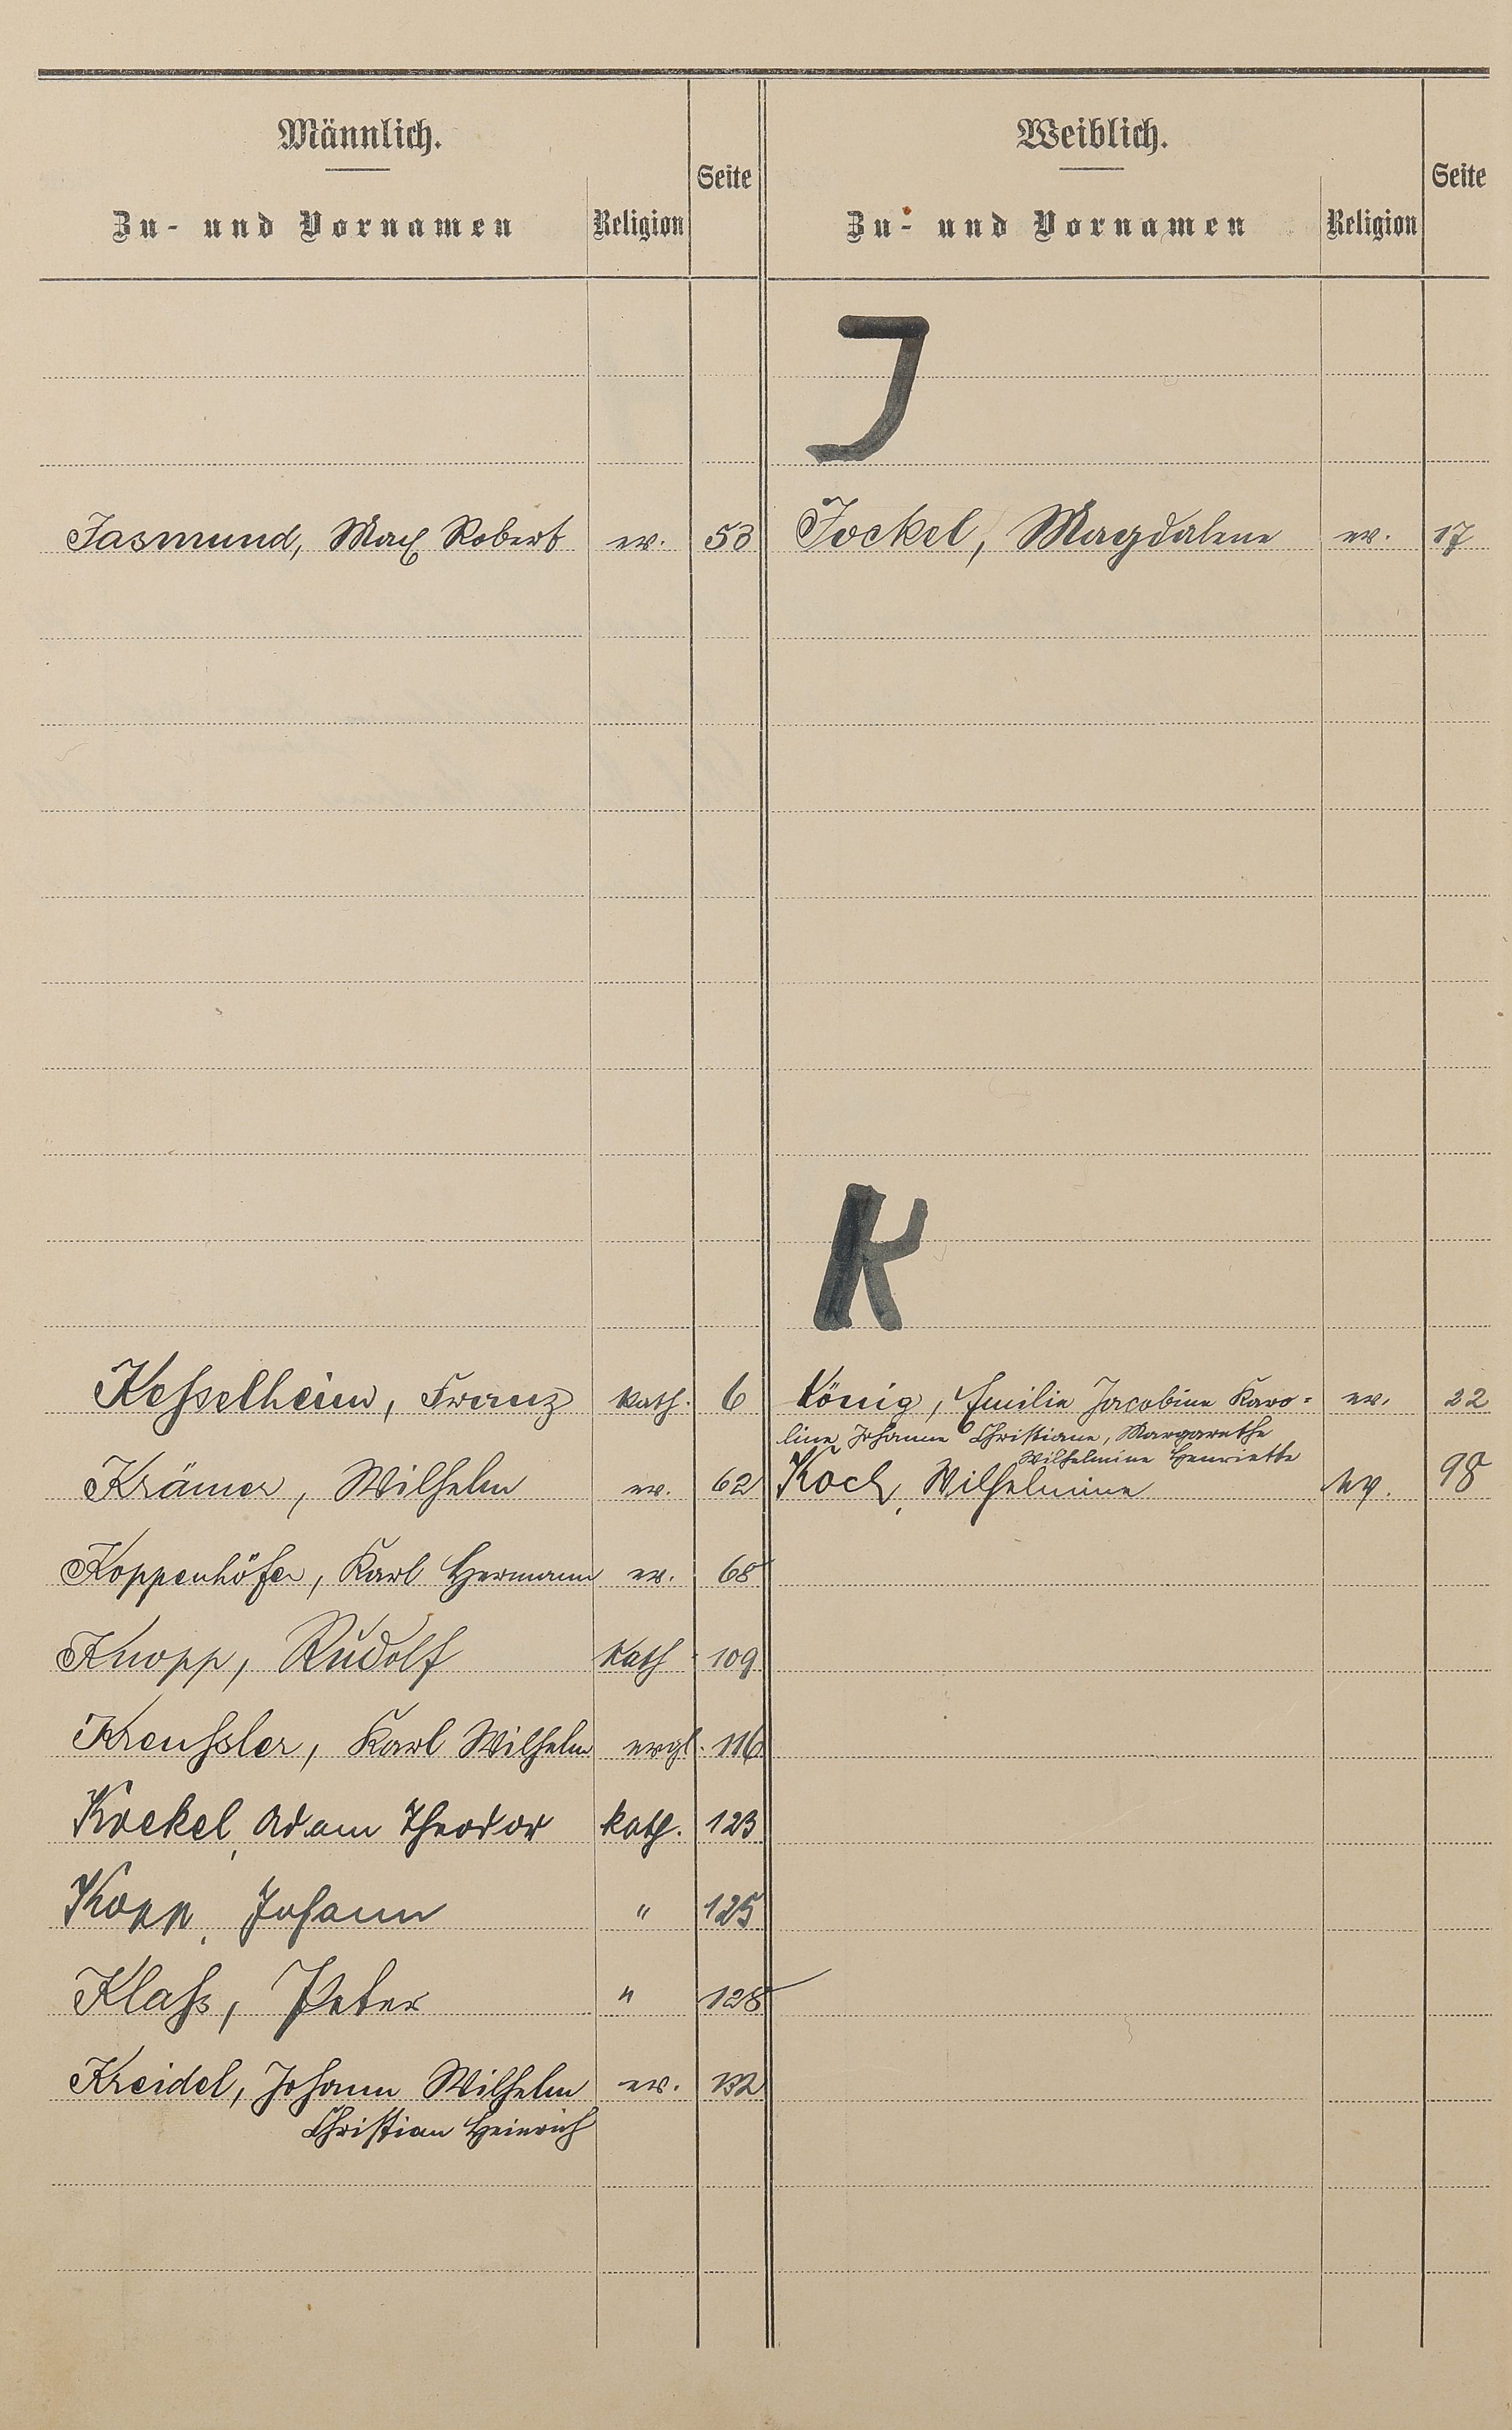 Männlich.
Zu- und Vornamen Religion Seite
Weiblich.
Zu- und Vornamen Religion Seite
J
Jasmund, Max Robert ev. 53
Jockel, Magdalene ev. 17
K
Kesselheim, Franz kath. 6
König, Emilie Jacobine Karo=
line, Johanne Christiane, Margarethe
Wilhelmine Henriette ev. 22
Krämer, Wilhelm ev. 62
Koch, Wilhelmine ev. 98
Koppenhöfer, Karl Hermann ev. 68
Knopp, Rudolf kath. 109
Kreußler, Karl Wilhelm evgl. 116
Kockel, Adam Theodor kath. 123
Kopp, Johann " 125
Klaß, Peter " 128
Kreidel, Johann Wilhelm ev. 132
Christian Heinrich